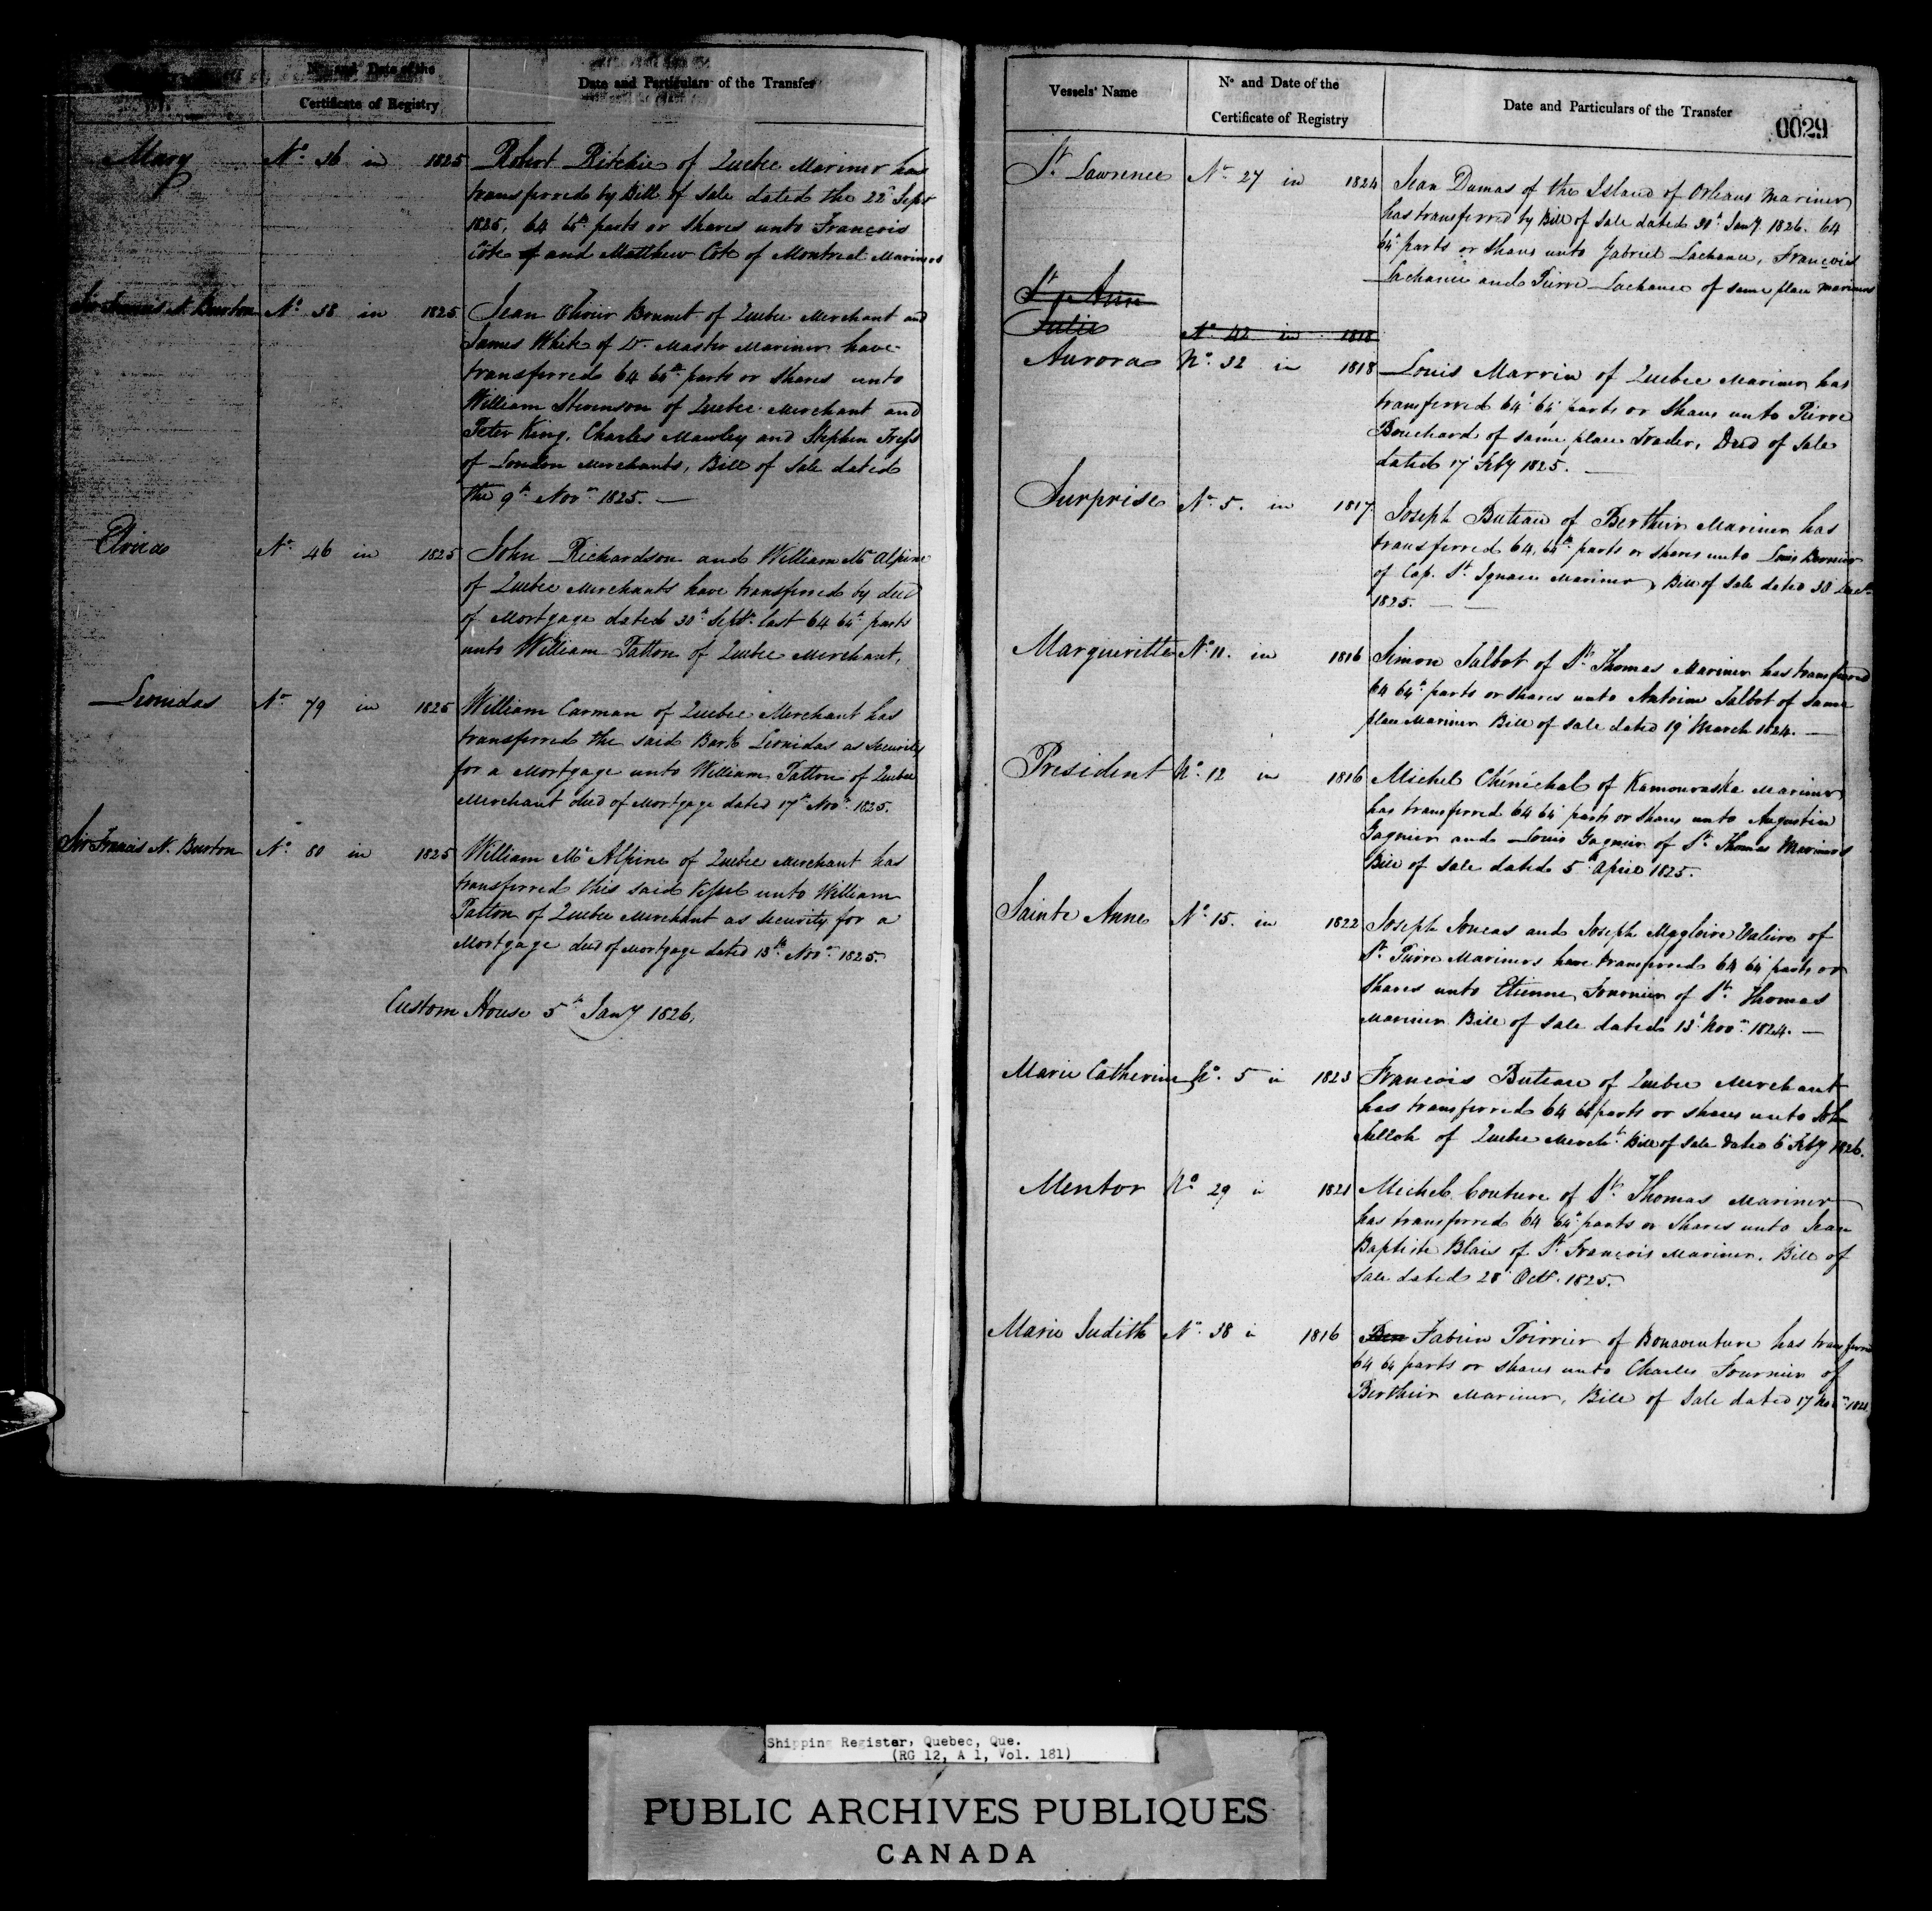 Nº and Date of the
Certificate of Registry
Date and Particulars of the Transfer
Mary Nº 36 in 1825 Robert Ritchie of Quebec Mariner has
transferred by Bill of Sale dated the 22d Sept
1825, 64 64th parts or Shares unto François
Cote of and Matthew Cote of Montreal Mariners
Sir Francis N. Burton Nº 38 in 1825 Jean Olivier Brunet of Quebec Merchant and
James White of Do. Master Mariner have
transferred 64 64th parts or Shares unto
William Stevenson of Quebec Merchant and
Peter King, Charles Mawley and Stephen
of London Merchants, Bill of Sale dated
the 9th Novr 1825. —
Elvira Nº 46 in 1825 John Richardson and William Mc Alpine
of Quebec Merchants have transferred by deed
of Mortgage dated 30th Septr last 64 64th parts
unto William Patton of Quebec Merchant,
Leonidas Nº 79 in 1825 William Carman of Quebec Merchant has
transferred the said Bark Leonidas as Security
for a Mortgage unto William Patton of Quebec
Merchant deed of Mortgage dated 17th Novr 1825.
Sir Francis N. Burton Nº 80 in 1825 William Mc Alpine of Quebec Merchant has
transferred this said Vessel unto William
Patton of Quebec Merchant as Security for a
Mortgage deed of Mortgage dated 15th Novr 1825.
Custom House 5th Jany 1826.
Vessels' Name
Nº and Date of the
Certificate of Registry
Date and Particulars of the Transfer
0029
St Lawrence Nº 27 in 1824 Jean Dumas of the Island of Orleans Mariner
has transferred by Bill of Sale dated 30th Jany 1826. 64
64th parts or Shares unto Gabriel Lachance, François
Lachance and Pierre Lachance of same place Mariners
St Ann
Julie Nº 42 in 1818
Aurora Nº 32 in 1818 Louis Marrin of Quebec Mariner has
transferred 64 64 parts or Shares unto Pierre
Bouchard of same place Trader, Deed of Sale
dated 17 Feby 1825. —
Surprise Nº 5. in 1817 Joseph Buteau of Berthier Mariner has
transferred 64, 64th parts or shares unto Louis Bernier
of Cap. St Ignace Mariner, Bill of Sale dated 30
1825. —
Margueritte Nº 11. in 1816 Simon Talbot of St Thomas Mariner has transferred
64 64th parts or Shares unto Antoine Talbot of same
place Mariner Bill of Sale dated 19 March 1824. —
President Nº 12 in 1816 Michel Chénéchal of Kamouraska Mariner
has transferred 64 64 parts or Shares unto Augustin
Gagnier and Louis Gagnier of St Thomas Mariners
Bill of Sale dated 5th April 1825.
Sainte Anne Nº 15. in 1822 Joseph Joncas and Joseph Magloire Valiere of
St Pierre Mariners have transferred 64 64 parts or
Shares unto Etienne Fournier of St Thomas
Mariner Bill of Sale dated 13 Novr 1824. —
Marie Catherine Nº 5 in 1823 Francois Buteau of Quebec Merchant
has transferred 64 64 parts or shares unto John
of Quebec Mercht Bill of Sale dated 6 Feby 1826.
Mentor Nº 29 in 1821 Michel Couture of St Thomas Mariner
has transferred 64 64th parts or Shares unto Jean
Baptiste Blais of St François Mariner. Bill of
Sale dated 28 Octr. 1825.
Marie Judith Nº 38 in 1816 Fabien Poirrier of Bonaventure has transferred
64 64 parts or shares unto Charles Fournier of
Berthier Mariner, Bill of Sale dated 17 Novr
Shipping Register, Quebec, Que.
(RG 12, A 1, Vol. 181)
PUBLIC ARCHIVES PUBLIQUES
CANADA